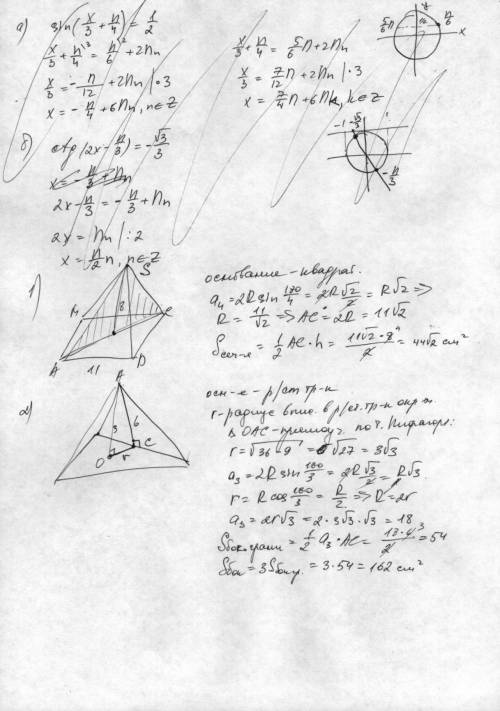 а) sin(x/3 + π/4) = 1/2
x/3 + π/4 = π/6 + 2πn
x/3 = -π/12 + 2πn | · 3
x = -π/4 + 6πn, n∈Z
x/3 + π/4 = 5/6 π + 2πn
x/3 = 7π/12 + 2πn | · 3
x = 7/4 π + 6πk, k∈Z
5/6 π
π/6
y
x
б) ctg(2x - π/3) = -√3/3
x = -π/3 + πn
2x - π/3 = -π/3 + πn
2x = πn | : 2
x = π/2 n, n∈Z
-1 -√3/3
-π/3
1)
S
M
8
C
A
11
D
основание - квадрат.
a₄ = 2R sin 180/4 = 2R√2/2 = R√2 =>
R = 11/√2 => AC = 2R = 11√2
Sсеч-я = 1/2 AC · h = 11√2 · 8/2 = 44√2 см²
2)
A
3
6
C
O
r
осн-е - р/ст тр-к
r - радиус впис. в р/ст. тр-к окр.
Δ OAC - прямоуг. по т. Пифагора:
r = √36 - 9 = √27 = 3√3
a₃ = 2R sin 180/3 = 2R√3/2 = R√3
r = R cos 180/3 = R/2 => R = 2r
a₃ = 2r√3 = 2 · 3√3 · √3 = 18
Sбок. грани = 1/2 a₃ · AC = 18 · 6/2 = 54
Sбок = 3Sбок.гр. = 3 · 54 = 162 см²